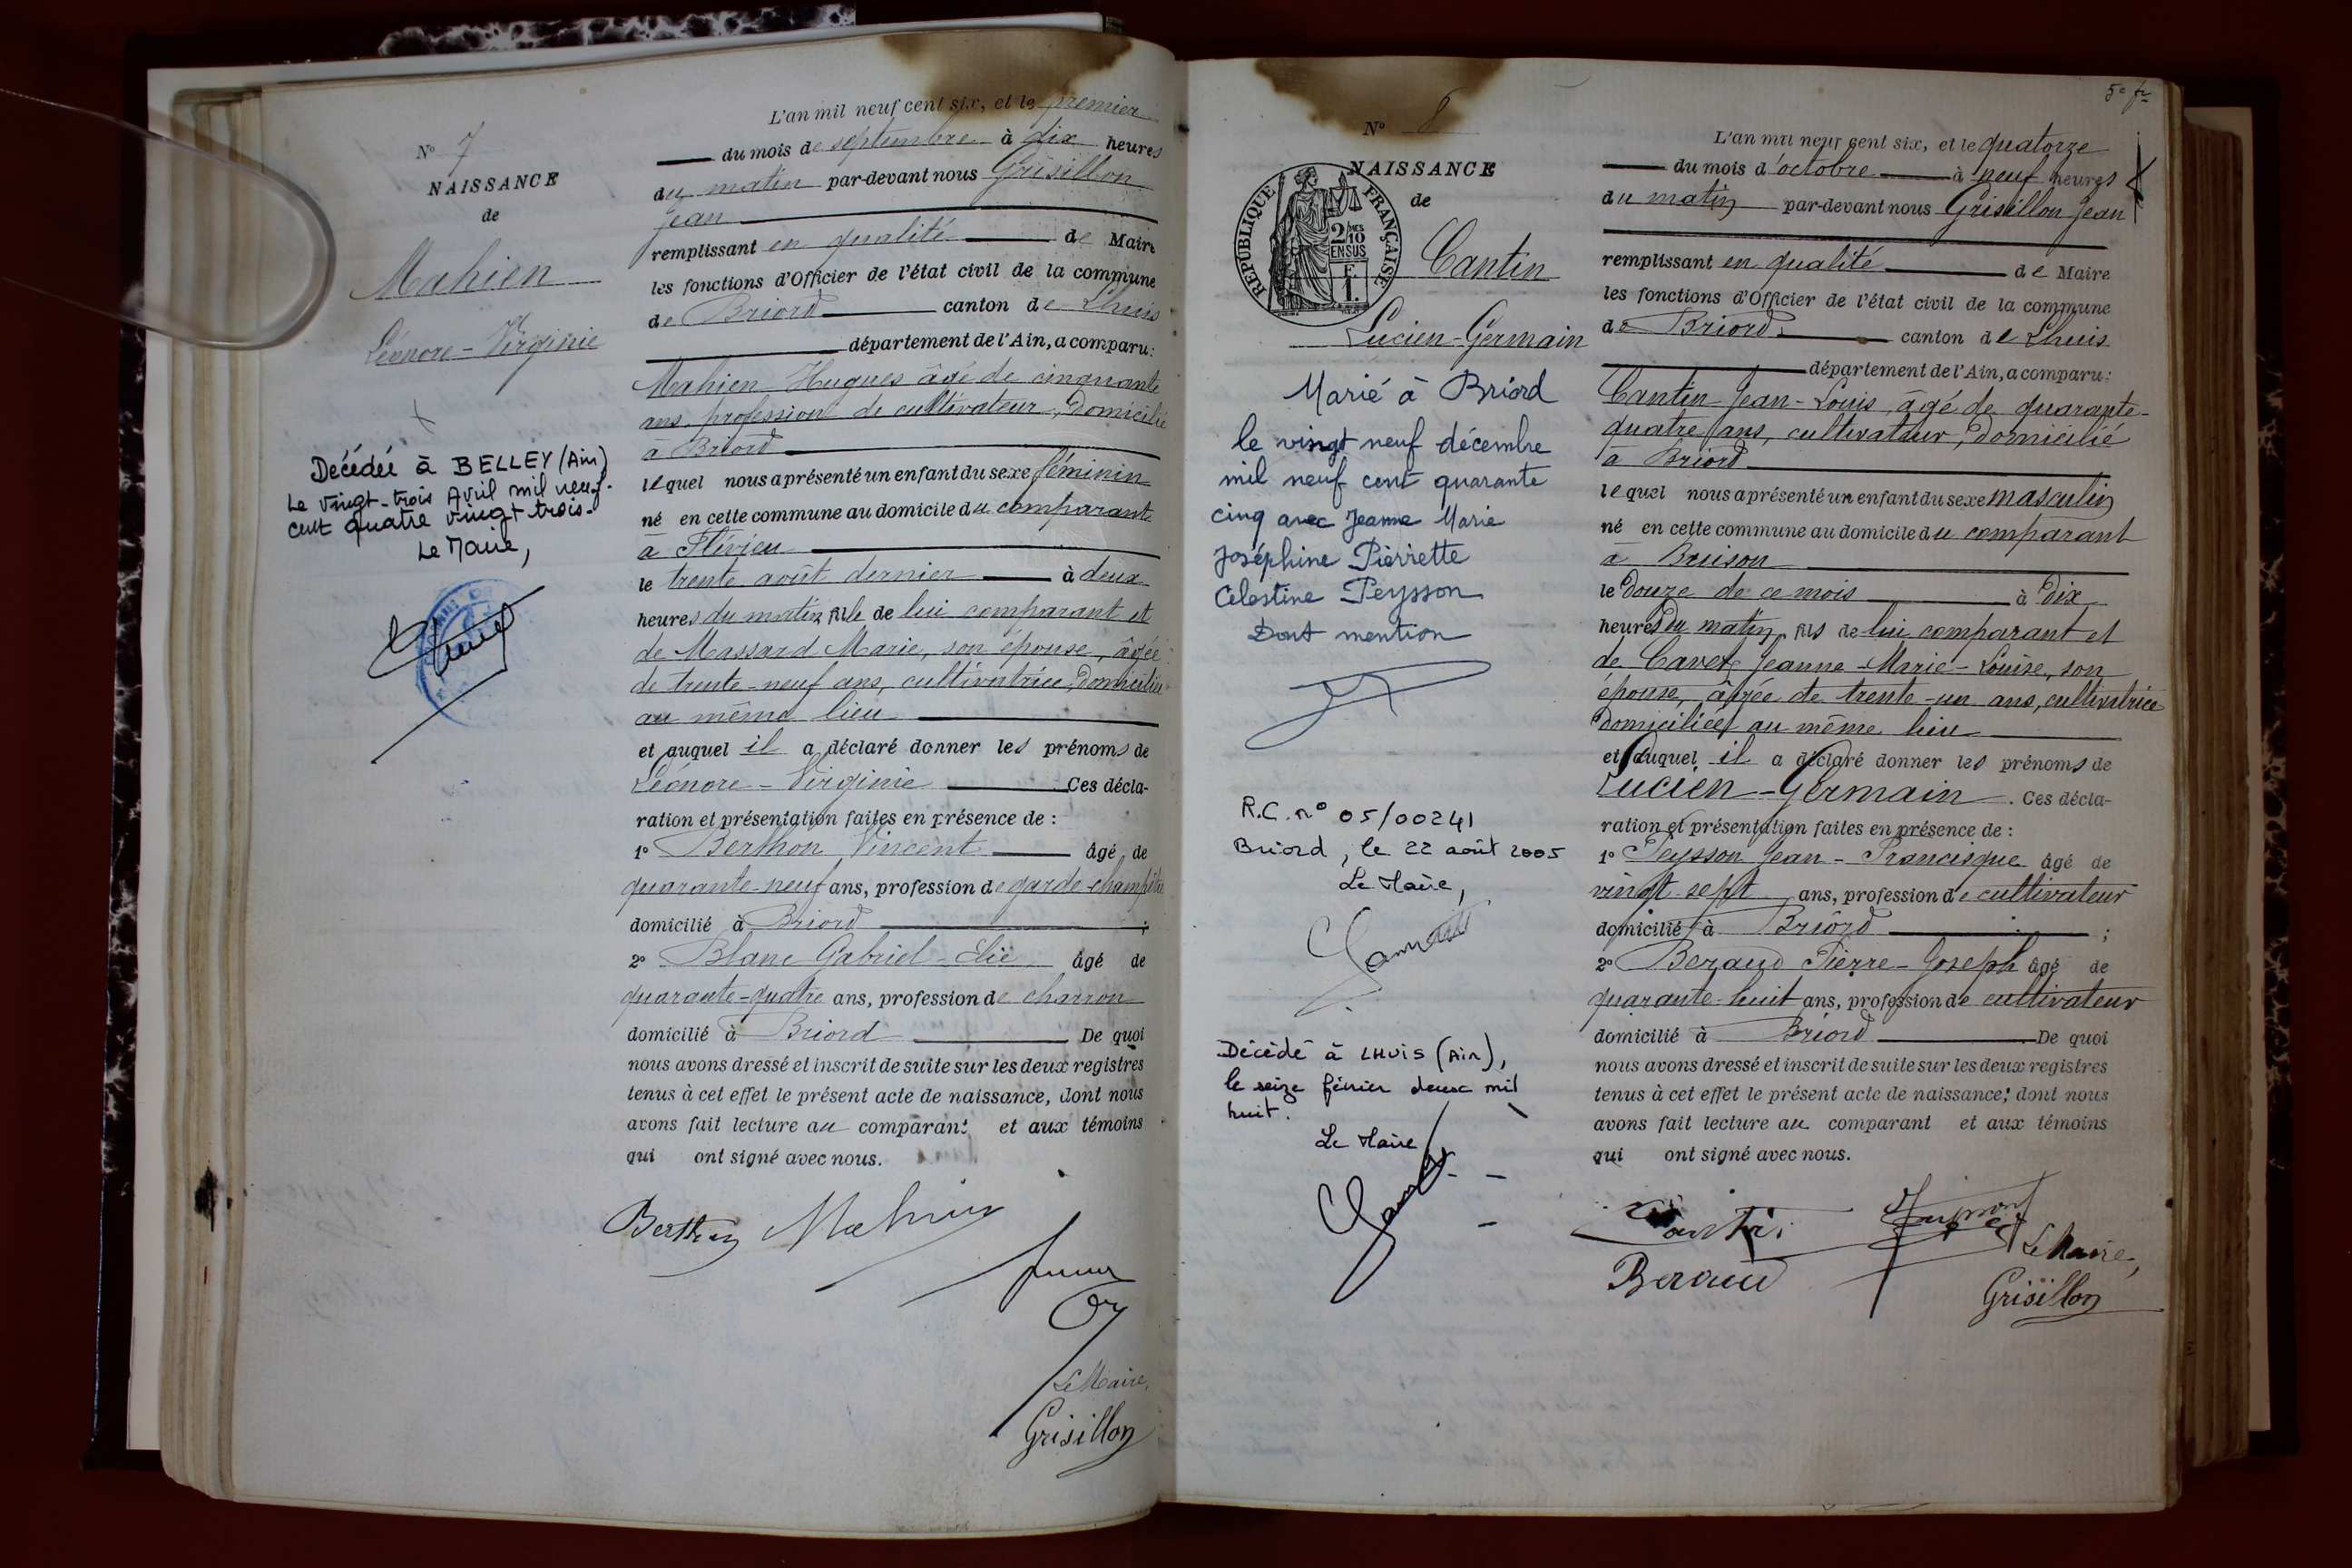 N° 7
NAISSANCE
de
Mahien
Léonore - Virginie
Décédée à BELLEY (Ain)
Le vingt-trois Avril mil neuf-
cent quatre vingt trois.
Le Maire,
L'an mil neuf cent six, et le premier
du mois de septembre à dix heures
du matin par-devant nous Grisillon
Jean
remplissant en qualité de Maire
les fonctions d'Officier de l'état civil de la commune
de Briord canton de Lhuis
département de l'Ain, a comparu:
Mahien Hugues âgé de cinquante
ans, profession de cultivateur, domicilié
à Briord
lequel nous a présenté un enfant du sexe féminin
né en cette commune au domicile du comparant
à Flévieu
le trente août dernier à deux
heures du matin, fille de lui comparant et
de Massard Marie, son épouse, âgée
de trente-neuf ans, cultivatrice, domiciliée
au même lieu
et auquel il a déclaré donner les prénoms de
Léonore - Virginie Ces décla-
ration et présentation faites en présence de :
1° Berthon Vincent âgé de
quarante-neuf ans, profession de garde-champêtre
domicilié à Briord ;
2° Blanc Gabriel-Elie âgé de
quarante-quatre ans, profession de charron
domicilié à Briord De quoi
nous avons dressé et inscrit de suite sur les deux registres
tenus à cet effet le présent acte de naissance, dont nous
avons fait lecture au comparant et aux témoins
qui ont signé avec nous.
Berthon Mahien
Le Maire,
Grisillon
5e f.
N° 8
NAISSANCE
de
RÉPUBLIQUE FRANÇAISE
2/10 MES
EN SUS
1 F.
Cantin
Lucien-Germain
Marié à Briord
le vingt neuf décembre
mil neuf cent quarante
cinq avec Jeanne Marie
Joséphine Pierrette
Celestine Peysson
Dont mention
R.C. n° 05/00241
Briord, le 22 août 2005
Le Maire,
Décédé à LHUIS (Ain),
le seize février deux mil
huit.
Le Maire
L'an mil neuf cent six, et le quatorze
du mois d'octobre à neuf heures
du matin par-devant nous Grisillon Jean
remplissant en qualité de Maire
les fonctions d'Officier de l'état civil de la commune
de Briord canton de Lhuis
département de l'Ain, a comparu:
Cantin Jean-Louis, âgé de quarante-
quatre ans, cultivateur, domicilié
à Briord
lequel nous a présenté un enfant du sexe masculin
né en cette commune au domicile du comparant
à
le douze de ce mois à dix
heures du matin, fils de lui comparant et
de Jeanne-Marie-Louise, son
épouse, âgée de trente-un ans, cultivatrice
domiciliée au même lieu
et auquel il a déclaré donner les prénoms de
Lucien-Germain. Ces décla-
ration et présentation faites en présence de :
1° Peysson Jean-Francisque âgé de
vingt-sept ans, profession de cultivateur
domicilié à Briord ;
2° Beraud Pierre-Joseph âgé de
quarante-huit ans, profession de cultivateur
domicilié à Briord De quoi
nous avons dressé et inscrit de suite sur les deux registres
tenus à cet effet le présent acte de naissance; dont nous
avons fait lecture au comparant et aux témoins
qui ont signé avec nous.
Cantin
Beraud
Le Maire,
Grisillon